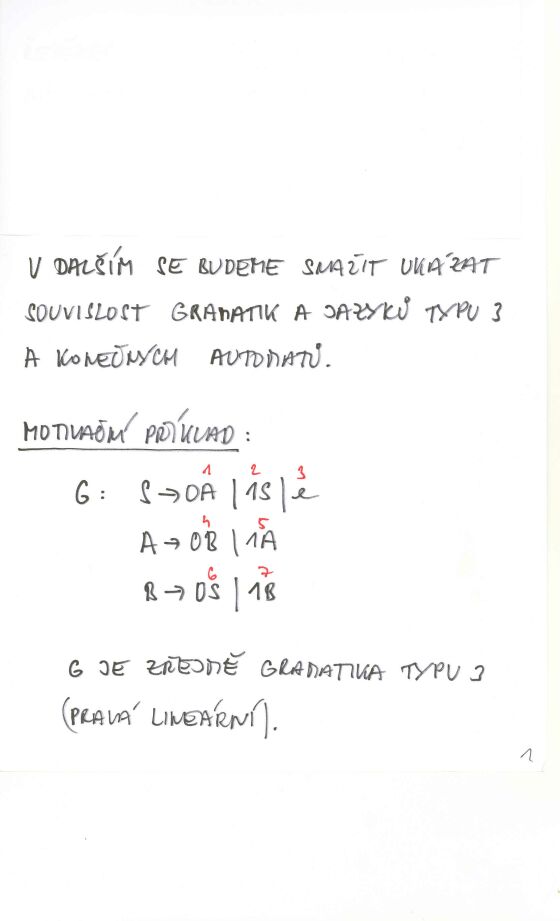 V DALŠÍM SE BUDEME SNAŽIT UKÁZAT
SOUVISLOST GRAMATIK A JAZYKŮ TYPU 3
A KONEČNÝCH AUTOMATŮ.
MOTIVAČNÍ PŘÍKLAD:
1 2 3
G: S → 0A | 1S | e
4 5
A → 0B | 1A
6 7
B → 0S | 1B
G JE ZŘEJMĚ GRAMATIKA TYPU 3
(PRAVÁ LINEÁRNÍ).
1